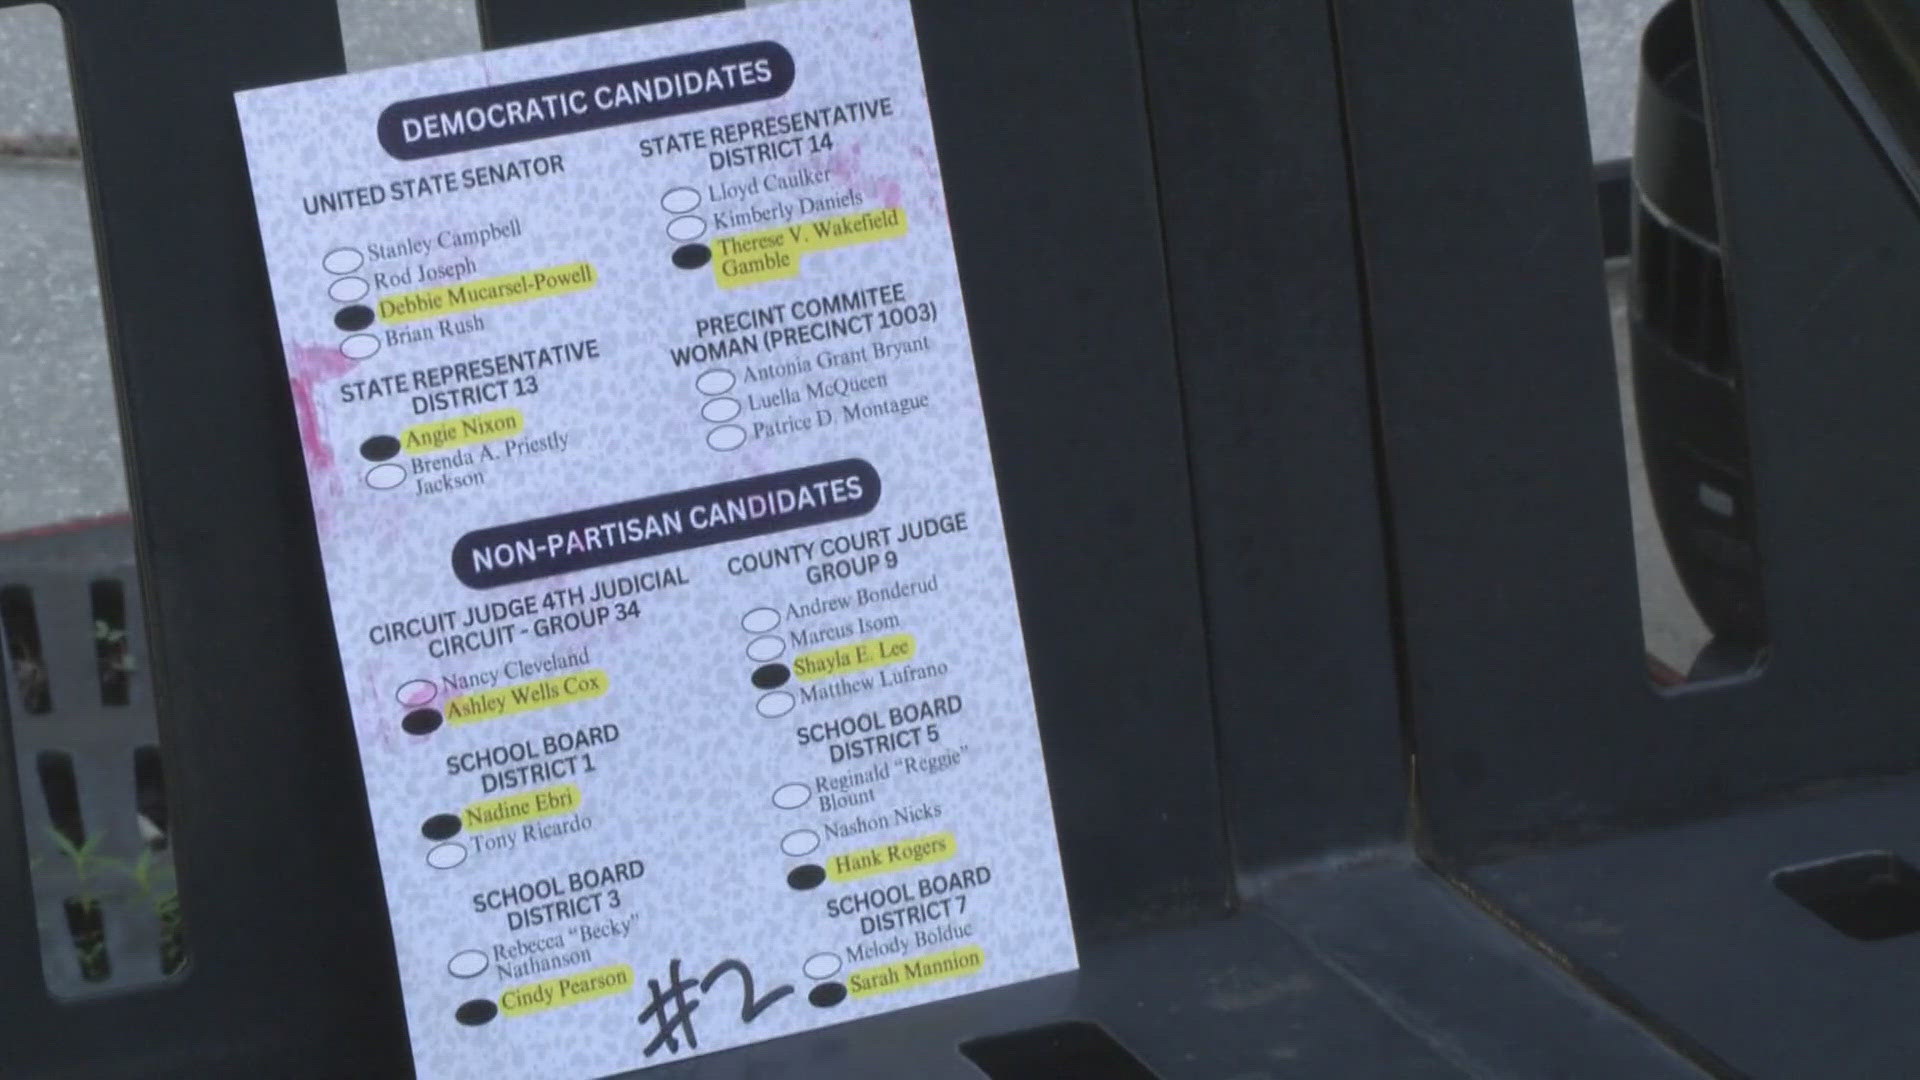 DEMOCRATIC CANDIDATES
UNITED STATE SENATOR
Stanley Campbell
Rod Joseph
Debbie Mucarsel-Powell
Brian Rush
STATE REPRESENTATIVE
DISTRICT 13
Angie Nixon
Brenda A. Priestly
Jackson
STATE REPRESENTATIVE
DISTRICT 14
Lloyd Caulker
Kimberly Daniels
Therese V. Wakefield
Gamble
PRECINT COMMITEE
WOMAN (PRECINCT 1003)
Antonia Grant Bryant
Luella McQueen
Patrice D. Montague
NON-PARTISAN CANDIDATES
CIRCUIT JUDGE 4TH JUDICIAL
CIRCUIT - GROUP 34
Nancy Cleveland
Ashley Wells Cox
SCHOOL BOARD
DISTRICT 1
Nadine Ebri
Tony Ricardo
SCHOOL BOARD
DISTRICT 3
Rebecca "Becky"
Nathanson
Cindy Pearson
COUNTY COURT JUDGE
GROUP 9
Andrew Bonderud
Marcus Isom
Shayla E. Lee
Matthew Lufrano
SCHOOL BOARD
DISTRICT 5
Reginald "Reggie"
Blount
Nashon Nicks
Hank Rogers
SCHOOL BOARD
DISTRICT 7
Melody Bolduc
Sarah Mannion
#2